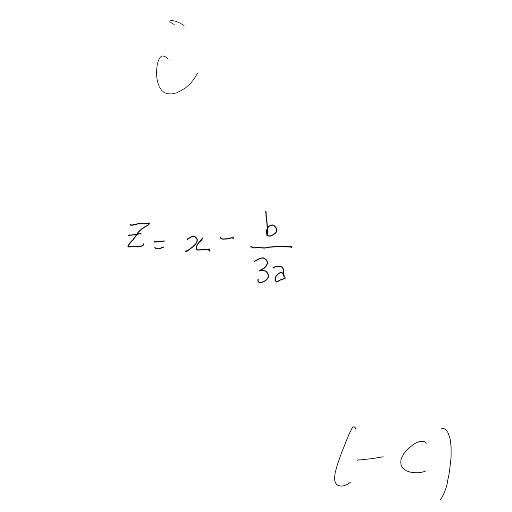 z = x - \frac{b}{3a}
(-c)